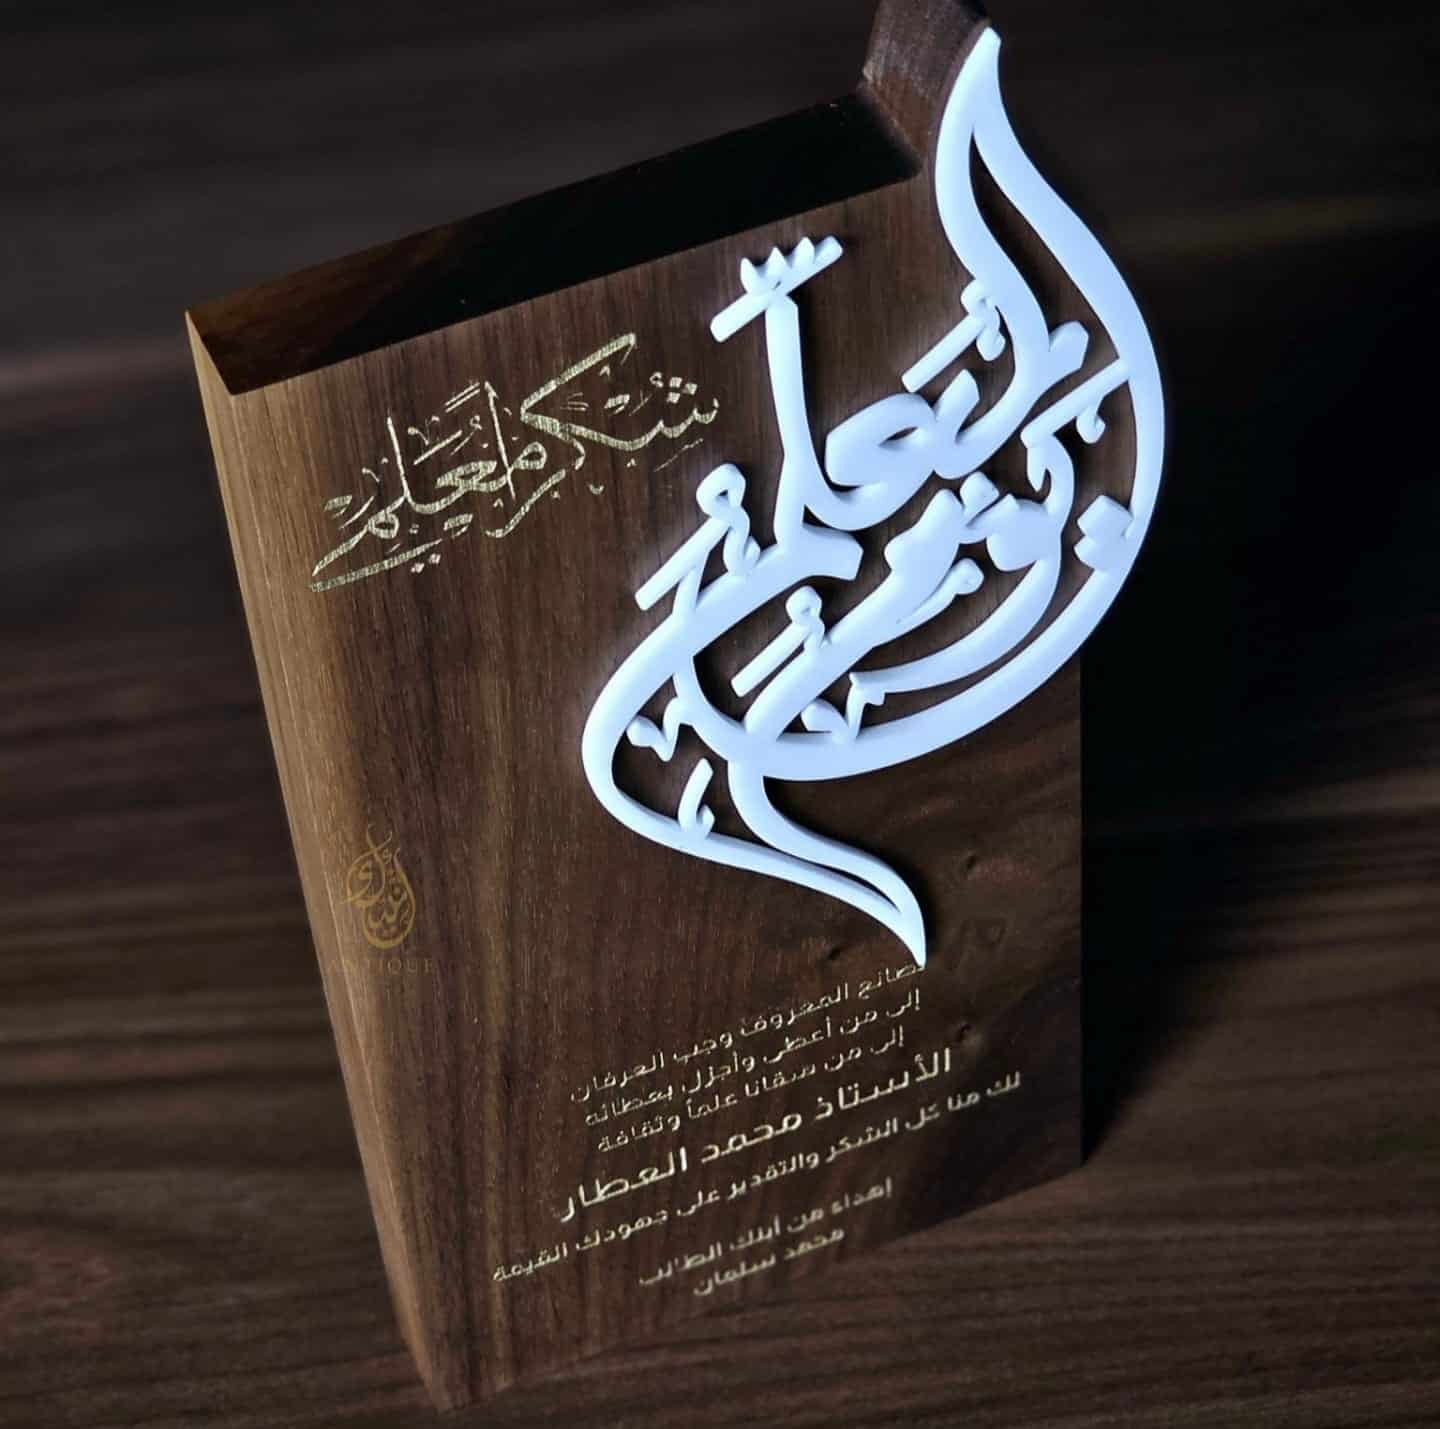 شكراً معلمي
لصانع المعروف وجب العرفان
إلى من أعطى وأجزل بعطائه
إلى من سقانا علماً وثقافة
الأستاذ محمد العطار
لك منا كل الشكر والتقدير على جهودك القيمة
إهداء من أبنك الطالب
محمد سلمان
أنتيك
ANTIQUE